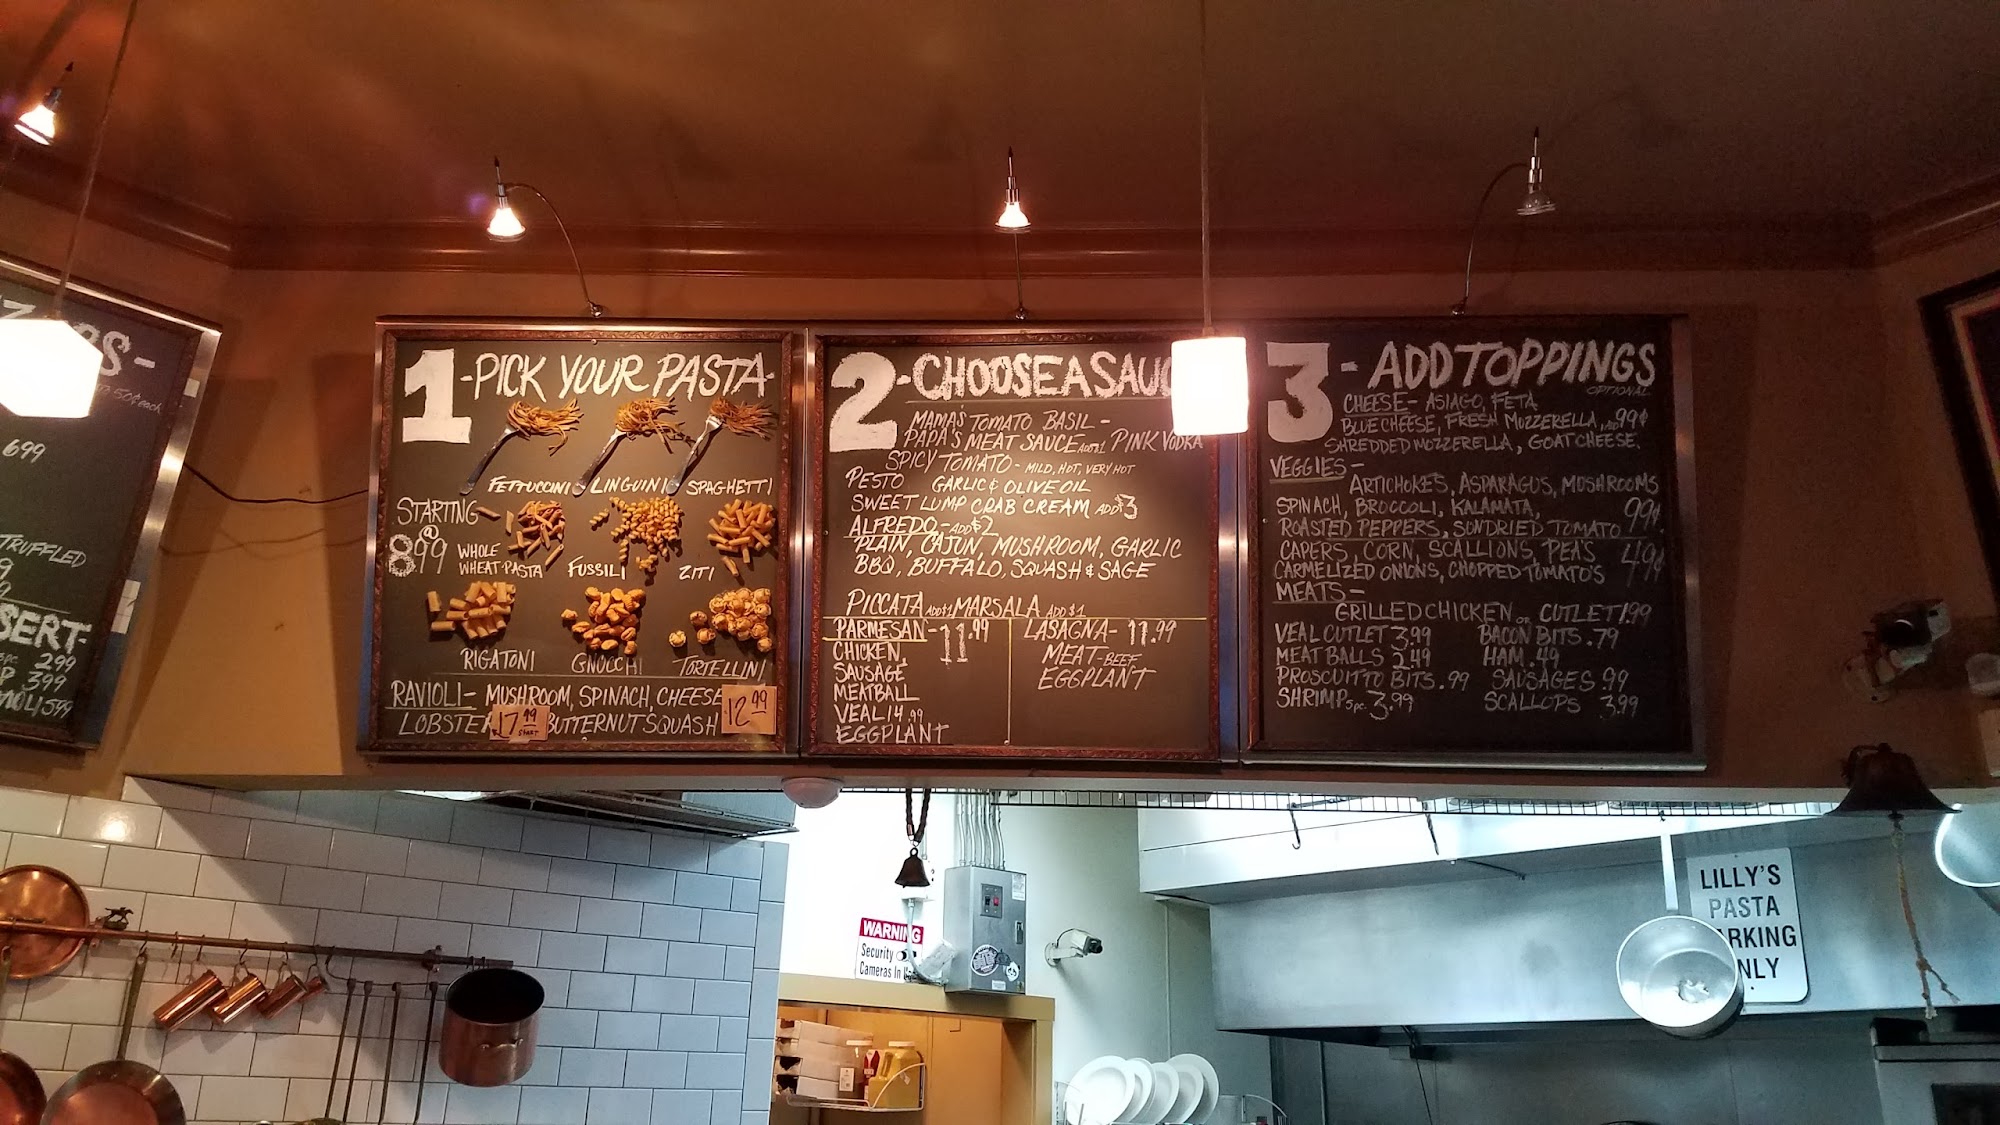 699
TRUFFLED
SERT-
299
399
NOLI 599
1 -PICK YOUR PASTA-
FETTUCCINI LINGUINI SPAGHETTI
STARTING
@
899 WHOLE
WHEAT PASTA FUSSILI ZITI
RIGATONI GNOCCHI TORTELLINI
RAVIOLI- MUSHROOM, SPINACH, CHEESE 12.99
LOBSTER 17.99 BUTTERNUT SQUASH
START
2 -CHOOSE A SAUC
MAMA'S TOMATO BASIL -
PAPA'S MEAT SAUCE ADD $1 PINK VODKA
SPICY TOMATO - MILD, HOT, VERY HOT
PESTO GARLIC & OLIVE OIL
SWEET LUMP CRAB CREAM ADD $3
ALFREDO - ADD $2
PLAIN, CAJUN, MUSHROOM, GARLIC
BBQ, BUFFALO, SQUASH & SAGE
PICCATA ADD $1 MARSALA ADD $1
PARMESAN - 11.99
CHICKEN,
SAUSAGE
MEATBALL
VEAL 14.99
EGGPLANT
LASAGNA - 11.99
MEAT - BEEF
EGGPLANT
3 - ADD TOPPINGS
OPTIONAL
CHEESE - ASIAGO, FETA
BLUE CHEESE, FRESH MOZZERELLA, ADD 99¢
SHREDDED MOZZERELLA, GOAT CHEESE
VEGGIES -
ARTICHOKES, ASPARAGUS, MUSHROOMS
SPINACH, BROCCOLI, KALAMATA, 99¢
ROASTED PEPPERS, SONDRIED TOMATO
CAPERS, CORN, SCALLIONS, PEA'S 49¢
CARMELIZED ONIONS, CHOPPED TOMATO'S
MEATS -
GRILLED CHICKEN OR CUTLET 1.99
VEAL CUTLET 3.99 BACON BITS .79
MEATBALLS 2.49 HAM .49
PROSCUITTO BITS .99 SAUSAGES .99
SHRIMP 5pc. 3.99 SCALLOPS 3.99
WARNING
Security
Cameras In
LILLY'S
PASTA
RKING
NLY